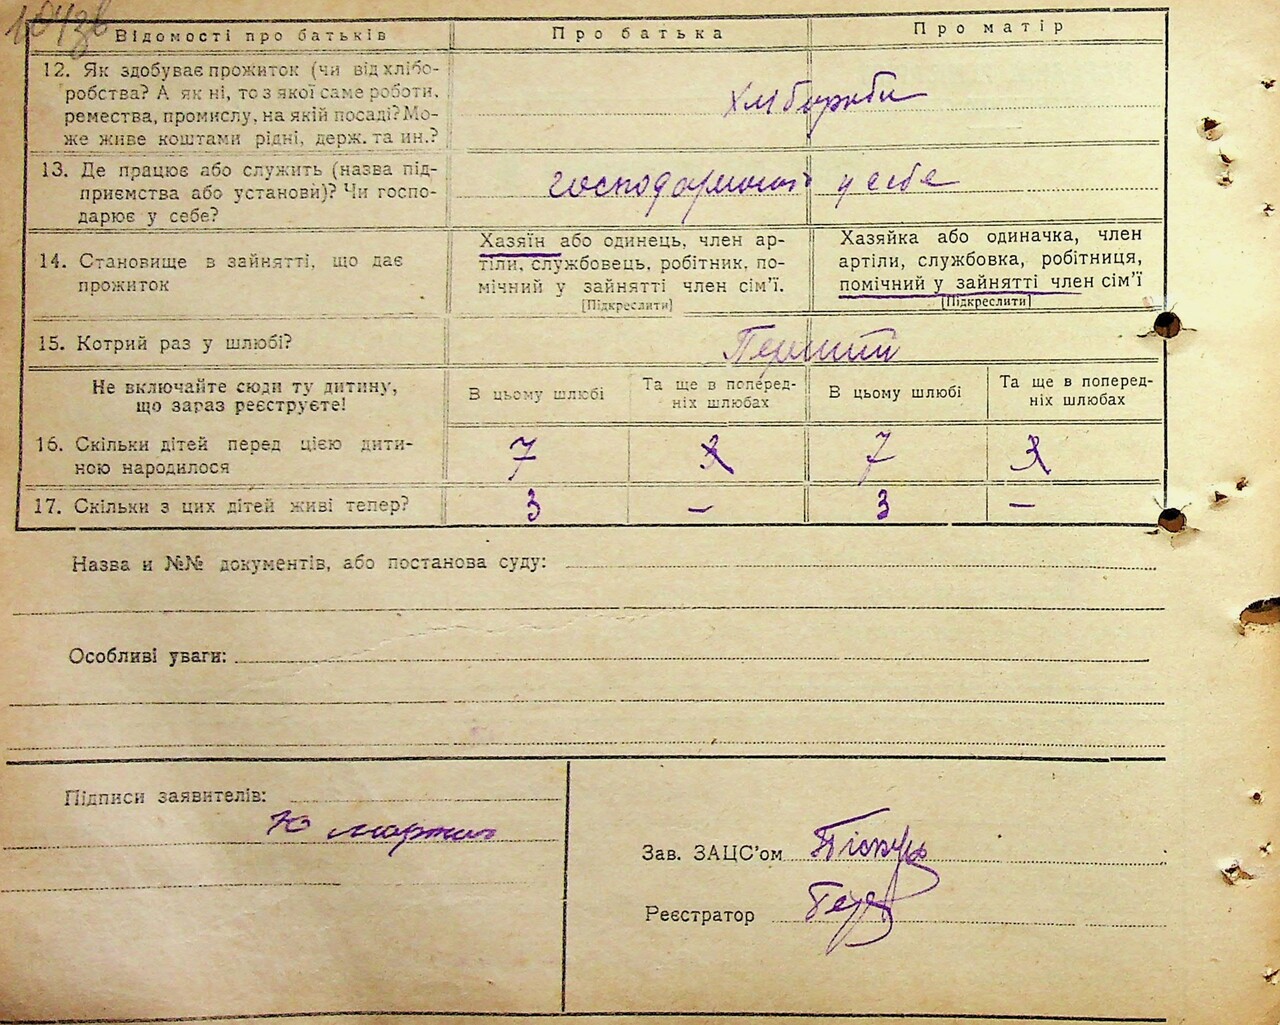 104зв
Відомості про батьків Про батька Про матір
12. Як здобуває прожиток (чи від хлібо-
робства? А як ні, то з якої саме роботи,
ремества, промислу, на якій посаді? Мо-
же живе коштами рідні, держ. та ин.?
Хлібороби
13. Де працює або служить (назва під-
приємства або установи)? Чи госпо-
дарює у себе?
господарюють у себе
14. Становище в зайнятті, що дає
прожиток
Хазяїн або одинець, член ар-
тіли, службовець, робітник, по-
мічний у зайнятті член сім'ї.
[Підкреслити]
Хазяйка або одиначка, член
артіли, службовка, робітниця,
помічний у зайнятті член сім'ї
[Підкреслити]
15. Котрий раз у шлюбі? Перший
Не включайте сюди ту дитину,
що зараз реєструєте!
В цьому шлюбі
Та ще в поперед-
ніх шлюбах
В цьому шлюбі
Та ще в поперед-
ніх шлюбах
16. Скільки дітей перед цією дити-
ною народилося
7 7
17. Скільки з цих дітей живі тепер? 3 — 3 —
Назва и №№ документів, або постанова суду:
Особливі уваги:
Підписи заявителів:
Ю
Зав. ЗАЦС'ом
Реєстратор